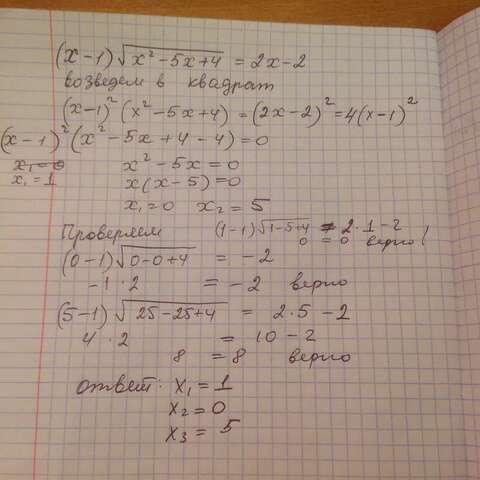 (x-1)√(x²-5x+4) = 2x-2
возведем в квадрат
(x-1)²(x²-5x+4) = (2x-2)² = 4(x-1)²
(x-1)²(x²-5x+4-4) = 0
x₁ = 0 x²-5x = 0
x₁ = 1 x(x-5) = 0
x₁ = 0 x₂ = 5
Проверяем (1-1)√(1-5+4) = 2·1-2
0 = 0 верно!
(0-1)√(0-0+4) = -2
-1·2 = -2 верно
(5-1)√(25-25+4) = 2·5-2
4·2 = 10-2
8 = 8 верно
ответ: x₁ = 1
x₂ = 0
x₃ = 5